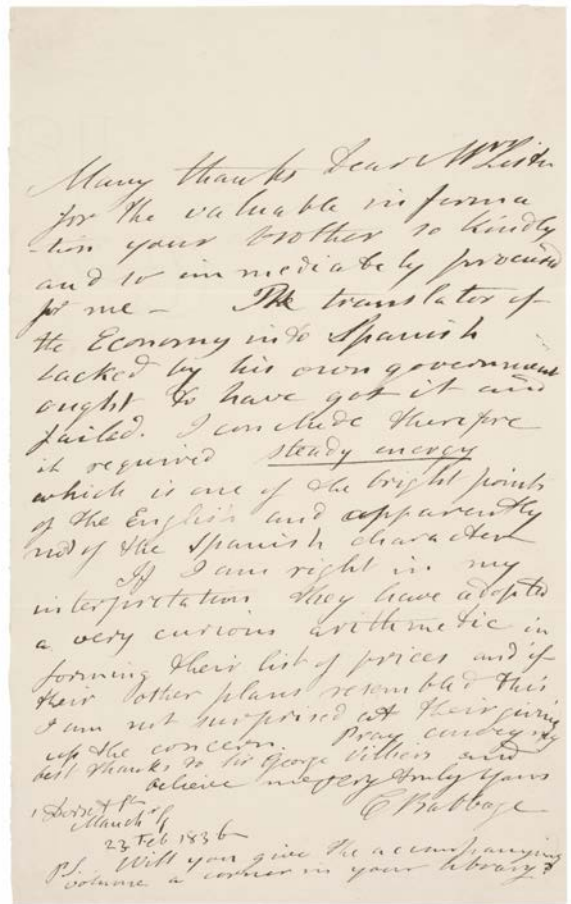 Many thanks Dear Mrs Lister
for the valuable informa
-tion your brother so kindly
and so immediately procured
for me - The translator of
the Economy into Spanish
backed by his own government
ought to have got it and
failed. I conclude therefore
it required steady energy
which is one of the bright points
of the English and apparently
not of the Spanish character
If I am right in my
interpretation they have adopted
a very curious arithmetic in
forming their list of prices and if
their other plans resembled this
I am not surprised at their giving
up the concern. Pray convey my
best thanks to Sir George Villiers and
believe me very truly yours
C Babbage
1 Dorset St
Manch Sq
23 Feb 1836
PS. Will you give the accompanying
volume a corner in your library?